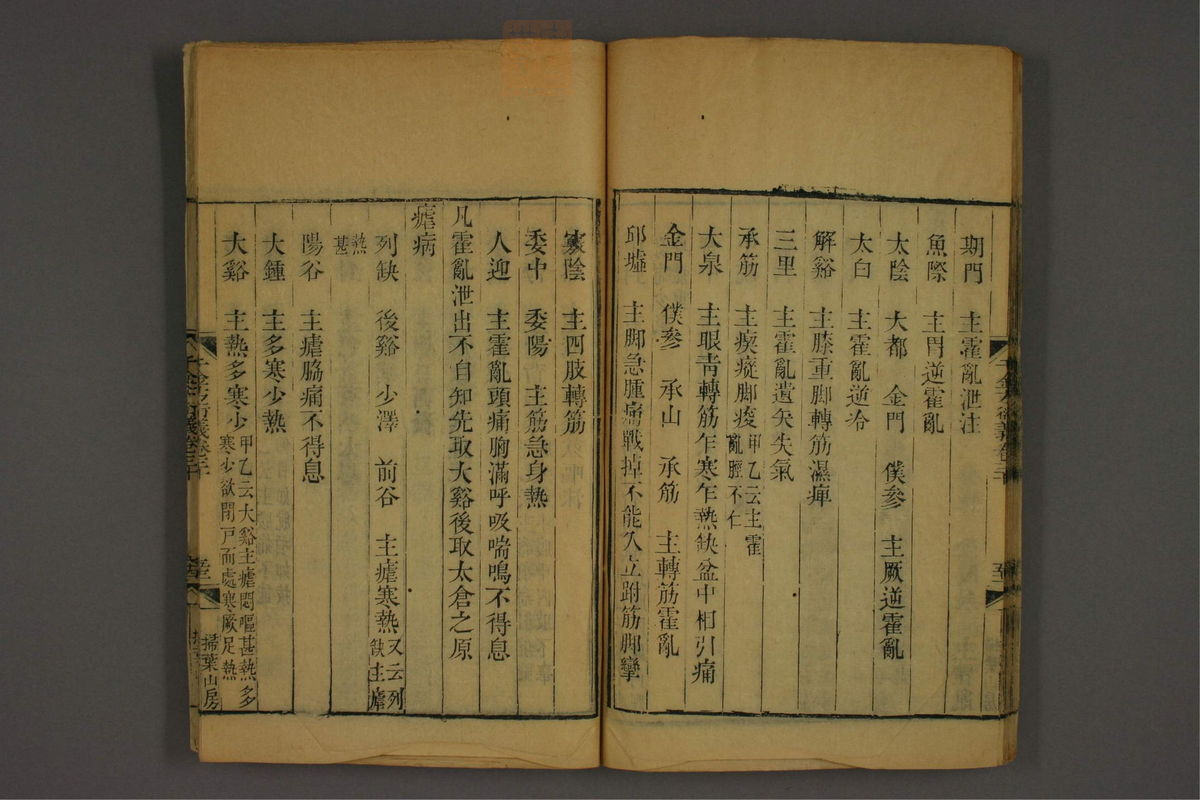 期門　主霍亂泄注
魚際　主胃逆霍亂
太陰　大都　金門　僕參　主厥逆霍亂
太白　主霍亂逆冷
解谿　主膝重脚轉筋濕痺
三里　主霍亂遺矢失氣
承筋　主瘈瘲脚痠甲乙云主霍亂脛不仁
大泉　主眼青轉筋乍寒乍熱缺盆中相引痛
金門　僕參　承山　承筋　主轉筋霍亂
邱墟　主脚急腫痛戰掉不能久立跗筋脚攣
竅陰　主四肢轉筋
委中　委陽　主筋急身熱
人迎　主霍亂頭痛胸滿呼吸喘鳴不得息
凡霍亂泄出不自知先取大谿後取太倉之原
瘧病
列缺　後谿　少澤　前谷　主瘧寒熱又云列缺主瘧
熱甚
陽谷　主瘧脇痛不得息
大鍾　主多寒少熱
大谿　主熱多寒少甲乙云大谿主瘧悶嘔甚熱多寒少欲閉戸而處寒厥足熱
掃葉山房